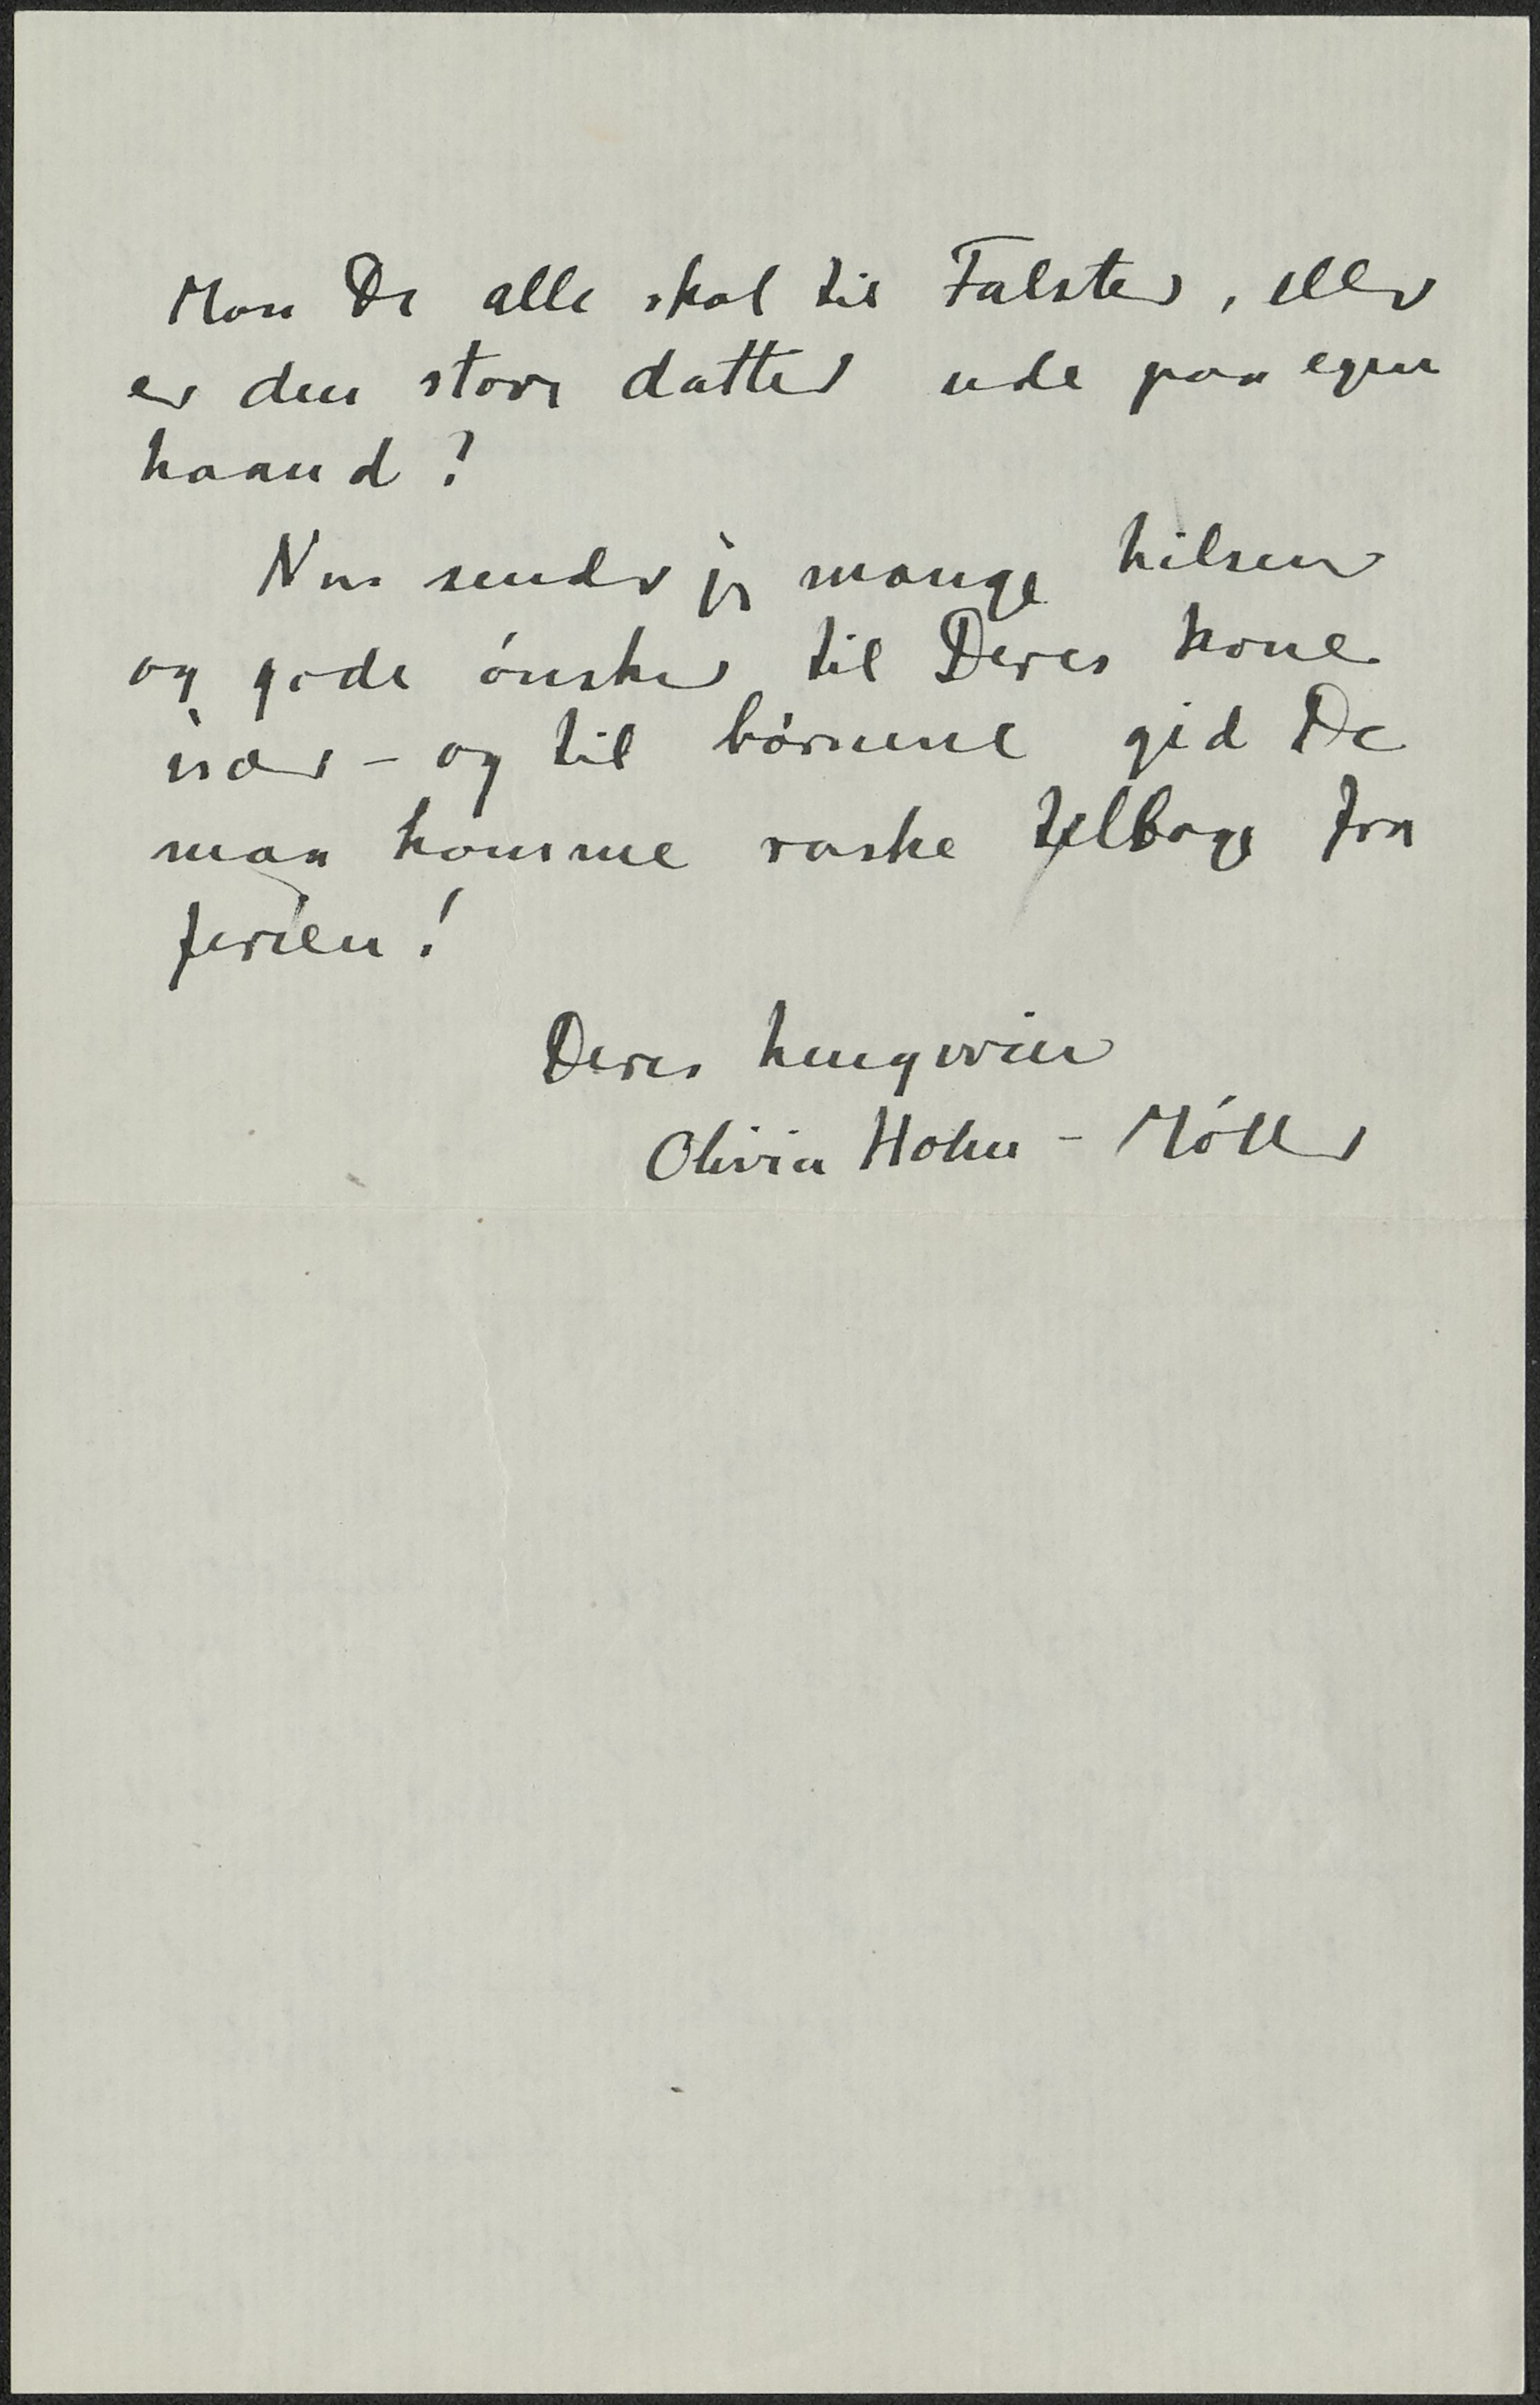 Mon De alle skal til Falster, eller
er den store datter ude paa egen
haand?
Nu sender jeg mange hilsener
og gode ønsker til Deres kone
især - og til børnene gid De
maa komme raske tilbage fra
ferien!
Deres hengivne
Olivia Holm - Møller